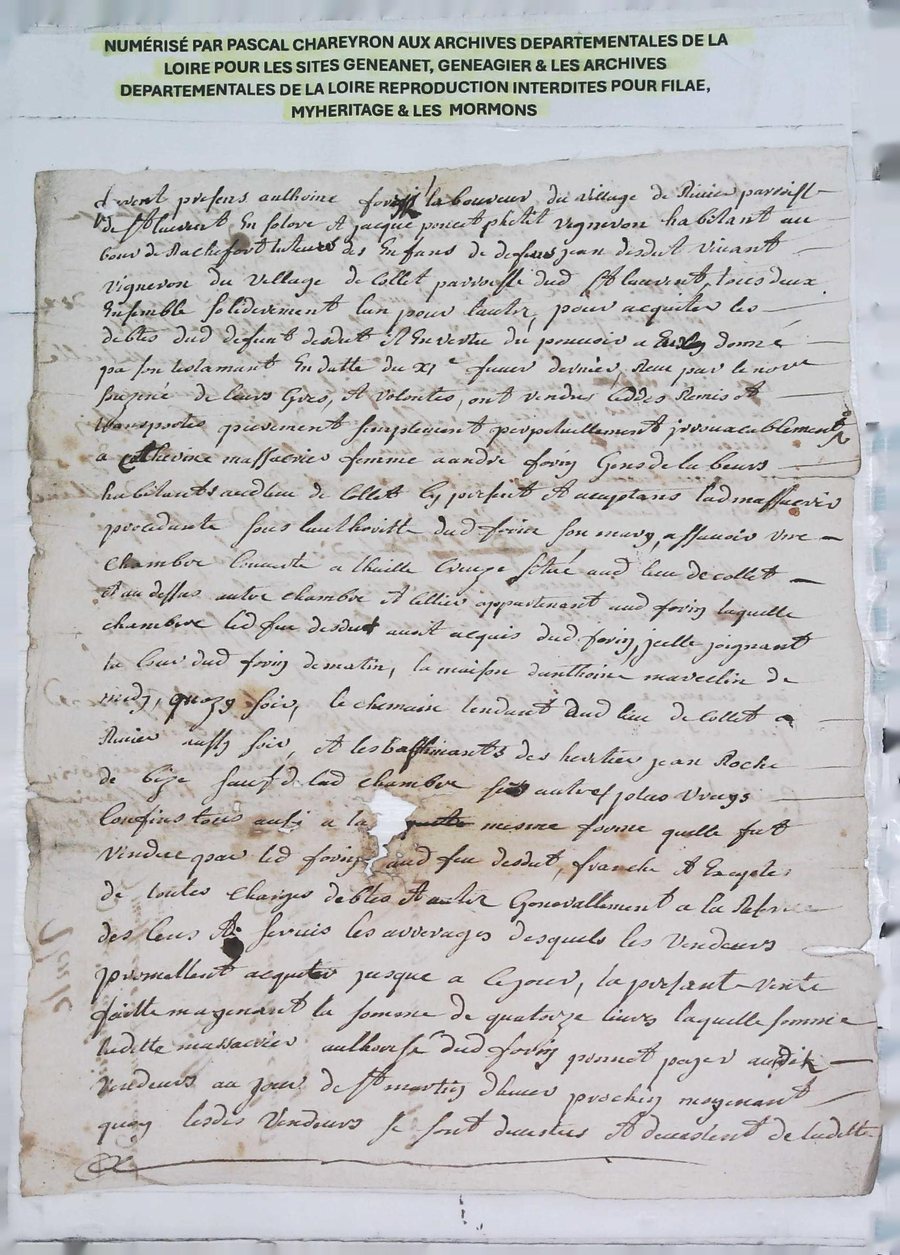 NUMÉRISÉ PAR PASCAL CHAREYRON AUX ARCHIVES DEPARTEMENTALES DE LA
LOIRE POUR LES SITES GENEANET, GENEAGIER & LES ARCHIVES
DEPARTEMENTALES DE LA LOIRE REPRODUCTION INTERDITES POUR FILAE,
MYHERITAGE & LES MORMONS
presens anthoine laboureur du village de paroiss
de St laurent En solore Et jacque poncet vigneron habitant au
bour de Rochefort tuteurs des Enfans de defunt jean desdut vivant
vigneron du village de Collet parroisse dud St laurent, tous deux
Ensemble soliderement lun pour lautre, pour acquiter les
debtes dud defunt desdut Et En vertu du pouvoir a donné
pa son testamant En datte du xi e dernier, Reçu par le no re
de leurs Grés, Et volontés, ont vendus Remis Et
transportés purement simplement perpetuellement jrrevocablement
a Catherine massacrier femme a andre forin Gens de labeurs
habitants aud lieu de Collet Cy present Et aceptans lad massacrier
procedante sous lauthoritte dud forin son mary, assavoir une
chambre Couverte a thuille Creuze situé aud lieu de collet
Et au dessus autre chambre Et Cellier appartenant aud forin laquelle
chambre led feu desdut avoit acquis dud forin, jcelle joignant
la Cour dud forin de matin, la maison danthoine marcelin de
midy, soir, le chemain tendant dud lieu de Collet a
Ruier aussy soir, Et les battimants des heritier jean Roche
de bize sauf de lad chambre ses autres plus vrays
Confins tous ainsi a la mesme forme quelle fut
vendue par led forin aud feu desdut, franche Et Exempte
de toutes charges debtes Et autre Generallement a la
des Cens Et servis les arrerages desquels les vendeurs
promettent acquiter jusque a Ce jour, la present vente
faitte moyenant la somme de quatorze livres laquelle somme
ladette massacrier authorisé dud forin promet payer audit
vendeurs au jour de St martin dhiver prochin moyenant
quoy lesdes vendeurs se sont devestus Et devestent de ladette